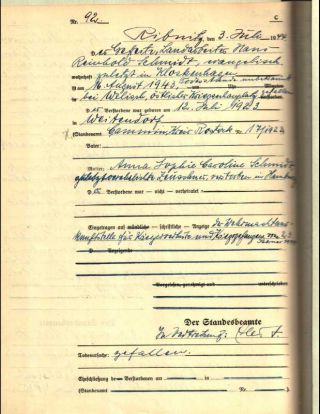 Nr. 92. C
Ribnitz, den 3. Juli 1944
Der Gefreite, Landarbeiter Hans
Reinhold Schmidt, evangelisch
wohnhaft zuletzt in Klockenhagen
ist am 16. August 1943, Todesstunde unbekannt
bei gefallen
Der Verstorbene war geboren am 12. Juli 1923
in Weitendorf
(Standesamt Nr. 17/1923)
Vater:
Mutter: Anna Sophie Caroline Schmidt
verstorben in
Der Verstorbene war — nicht — verheiratet
Eingetragen auf mündliche — schriftliche — Anzeige der Wehrmachtaus-
kunftstelle für Kriegerverluste und Kriegsgefangene
Anzeigende
Vorgelesen, genehmigt und unterschrieben
Der Standesbeamte
In Vertretung:
Todesursache: gefallen.
Eheschließung de Verstorbenen am in
(Standesamt Nr. ).